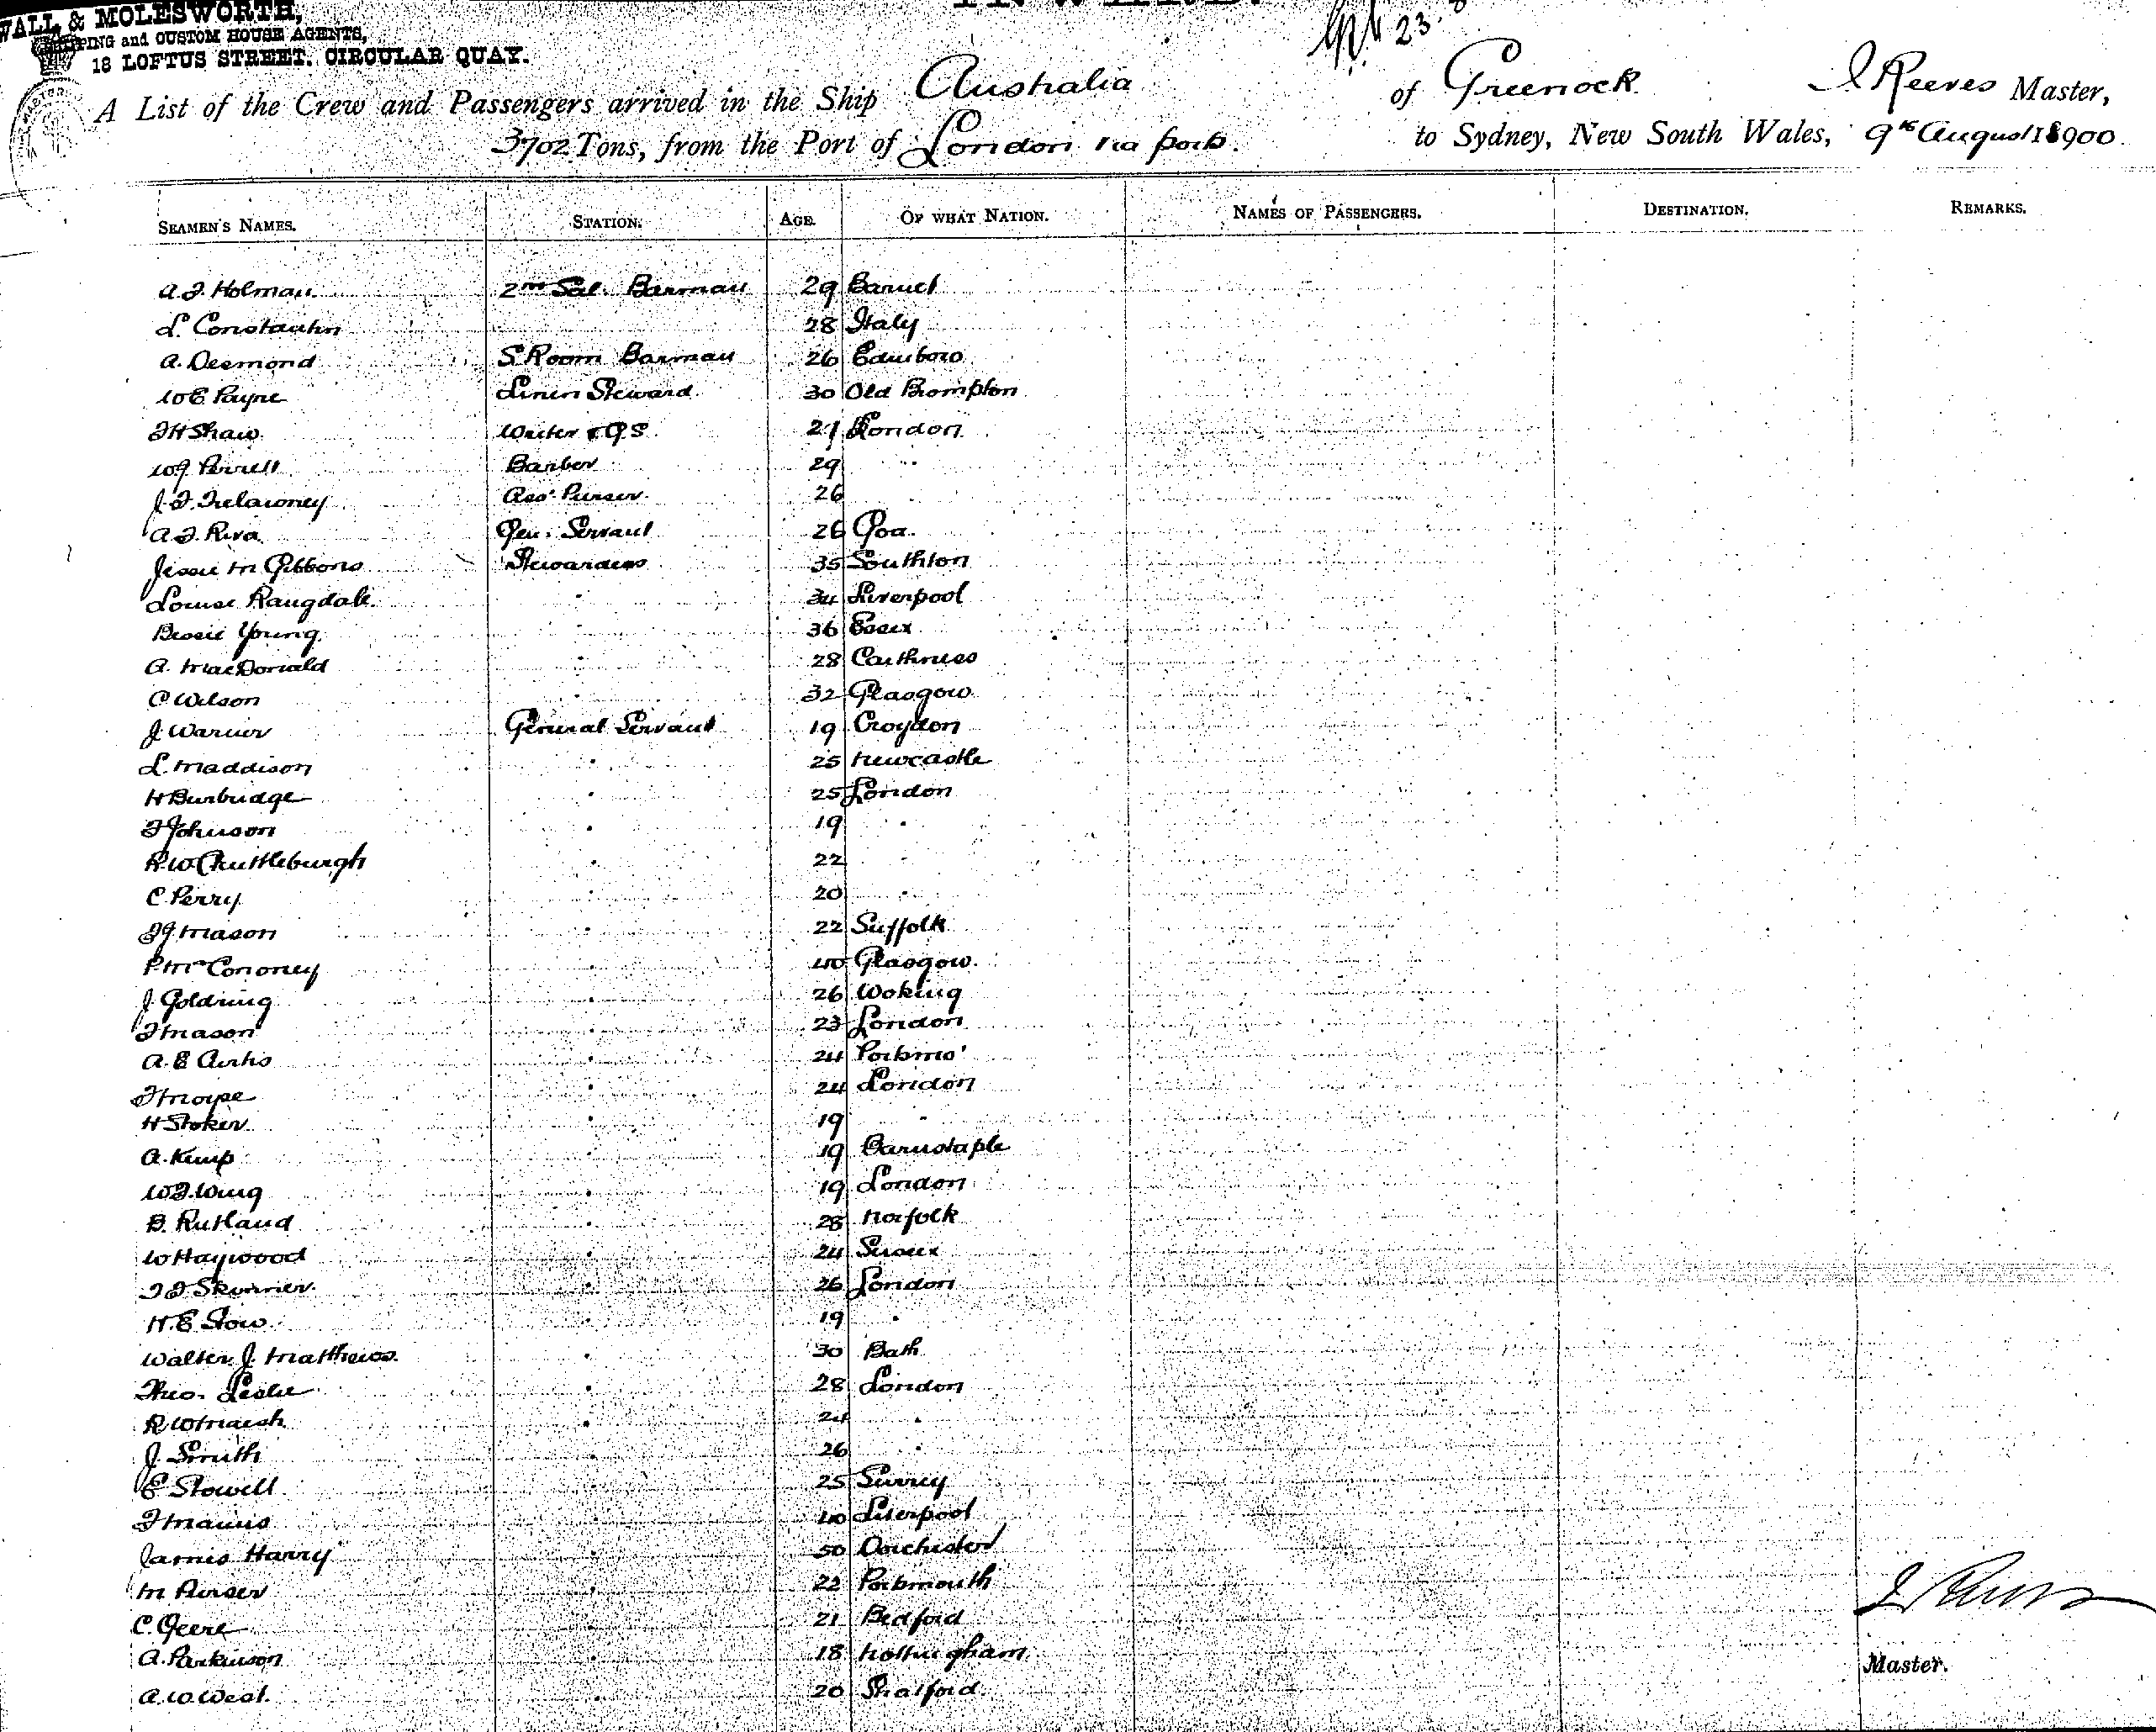 WALL & MOLESWORTH,
SHIPPING and CUSTOM HOUSE AGENTS,
18 LOFTUS STREET, CIRCULAR QUAY.
A List of the Crew and Passengers arrived in the Ship Australia of Greenock Reeves Master,
3702 Tons, from the Port of London via ports. to Sydney, New South Wales, 9th August 18900
SEAMEN'S NAMES. STATION. AGE. OF WHAT NATION. NAMES OF PASSENGERS. DESTINATION. REMARKS.
A.F. Holman 2nd Sal. Barman 29 Barnet
L. Constantin 28 Italy
A. Desmond S. Room Barman 26 Edinboro
W E Payne Linen Steward 30 Old Brompton
F H Shaw Writer & G.S. 21 London
W J Perrett Barber 29 "
J. F. Trelawney Asst Purser 26
A F. Riva Gen. Servant 26 Goa
Jessie M Gibbons Stewardess 35 Southton
Louise Rangdale " 34 Liverpool
Bessie Young " 36 Essex
A. MacDonald " 28 Caithness
C Wilson " 32 Glasgow
J. Warner General Servant 19 Croydon
L. Maddison " 25 Newcastle
H Burbridge " 25 London
F Johnson " 19 "
R. W. Chuttleburgh " 22 "
C Perry " 20 "
F J Mason " 22 Suffolk
P McConomy " 40 Glasgow
J. Goldring " 26 Woking
F Mason " 23 London
A. E " 24 Portsmo'
F Thorpe " 24 London
H Stoker " 19 "
A. Kemp " 19 Barnstaple
W F. Wing " 19 London
B. Rutland " 28 Norfolk
W Haywood " 24 Sussex
F F Skinner " 26 London
H. E Stow " 19 "
Walter J. Matthews " 30 Bath
Theo. Leslie " 28 London
R W Marsh " 24 "
J. Smith " 26 "
E Stowell " 25 Surrey
F Manns " 40 Liverpool
James Harry " 50 Dorchester
M Purser " 22 Portsmouth
C. Geere " 21 Bedford
A. Parkinson " 18 Nottingham
A. W. West " 20 Shalford
Master.